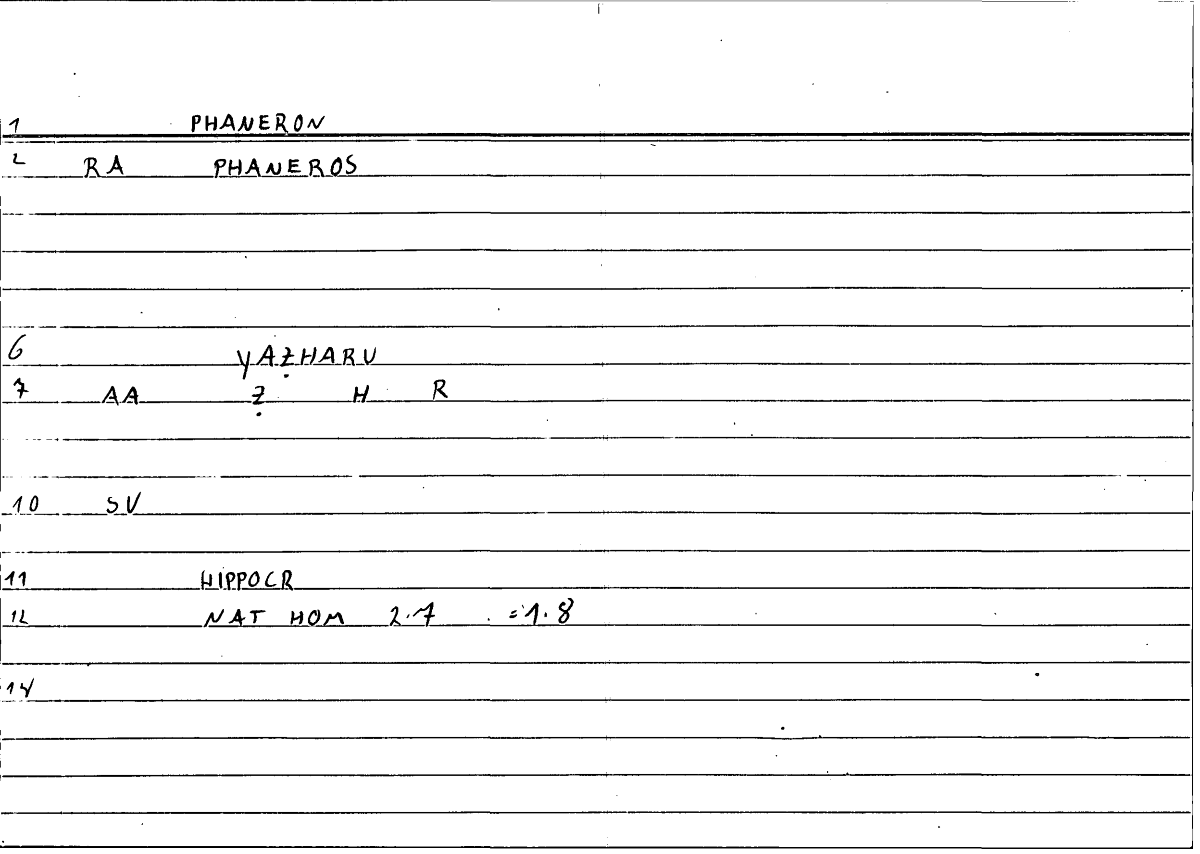 1 PHANERON
2 RA PHANEROS
6 YAẒHARU
7 AA Ẓ H R
10 SV
11 HIPPOCR
12 NAT HOM 2.7 =1.8
14